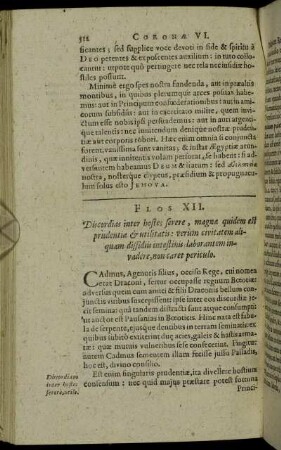 512 CORONÆ VI.
ficantes; sed supplice voce devoti in fide & spiritu à
DEO petentes & exposcentes auxilium: in tuto collo-
cantur: utpote quò pertingere nec tela nec insidiæ ho-
stiles possum.
Minimè ergo spes nostra fundenda, aut in præaltis
montibus, in quibus plerumque arces positas habe-
mus: aut in Principum confœderationibus: aut in ami-
corum subsidiis: aut in exercitato milite, quem invi-
ctum esse nobis ipsi persuademus: aut in auri argenti-
que talentis: nec innitendum denique nostræ pruden-
tiæ aut corporis robori. Hæc enim omnia si conjuncta
forent, vanissima sunt vanitas; & instar Ægyptiæ arun-
dinis, quæ innitentis volam perforat, se habent: si ad-
versentem habeamus DEUM & iratum: sed
nostra, nosterque clypeus, præsidium & propugnacu-
lum solus esto JEHOVA.
FLOS XII.
Discordias inter hostes serere, magnæ quidem est
prudentiæ & utilitatis: verùm civitatem ali-
quam dissidiis intestinis laborantem in-
vadere, non caret periculo.
CAdmus, Agenoris filius, occiso Rege, cui nomen
erat Draconi, fertur occupasse regnum Bœotiæ:
adversus quem cum amici & filii Draconis bellum con-
junctis viribus suscepissent: ipse inter eos discordiæ je-
cit semina: quâ tandem distracti suis sedibus cesserunt:
author est Pausanias in Bœoticis. Hinc nata est fabu-
la de serpente, ejusque dentibus in terram seminatis: ex
quibus subitò exiliere duæ acies, galeis & hastis arma-
tæ: quæ mutuis vulneribus sese confecerint. Fingitur
autem Cadmus sementem illam fecisse jussu Palladis,
hoc est, divino consilio.
Discordiam
inter hostes
serere, utile.
Est enim singularis prudentiæ, ita divellere hostium
consensum: nec quid majus præstare potest summa
Princi-